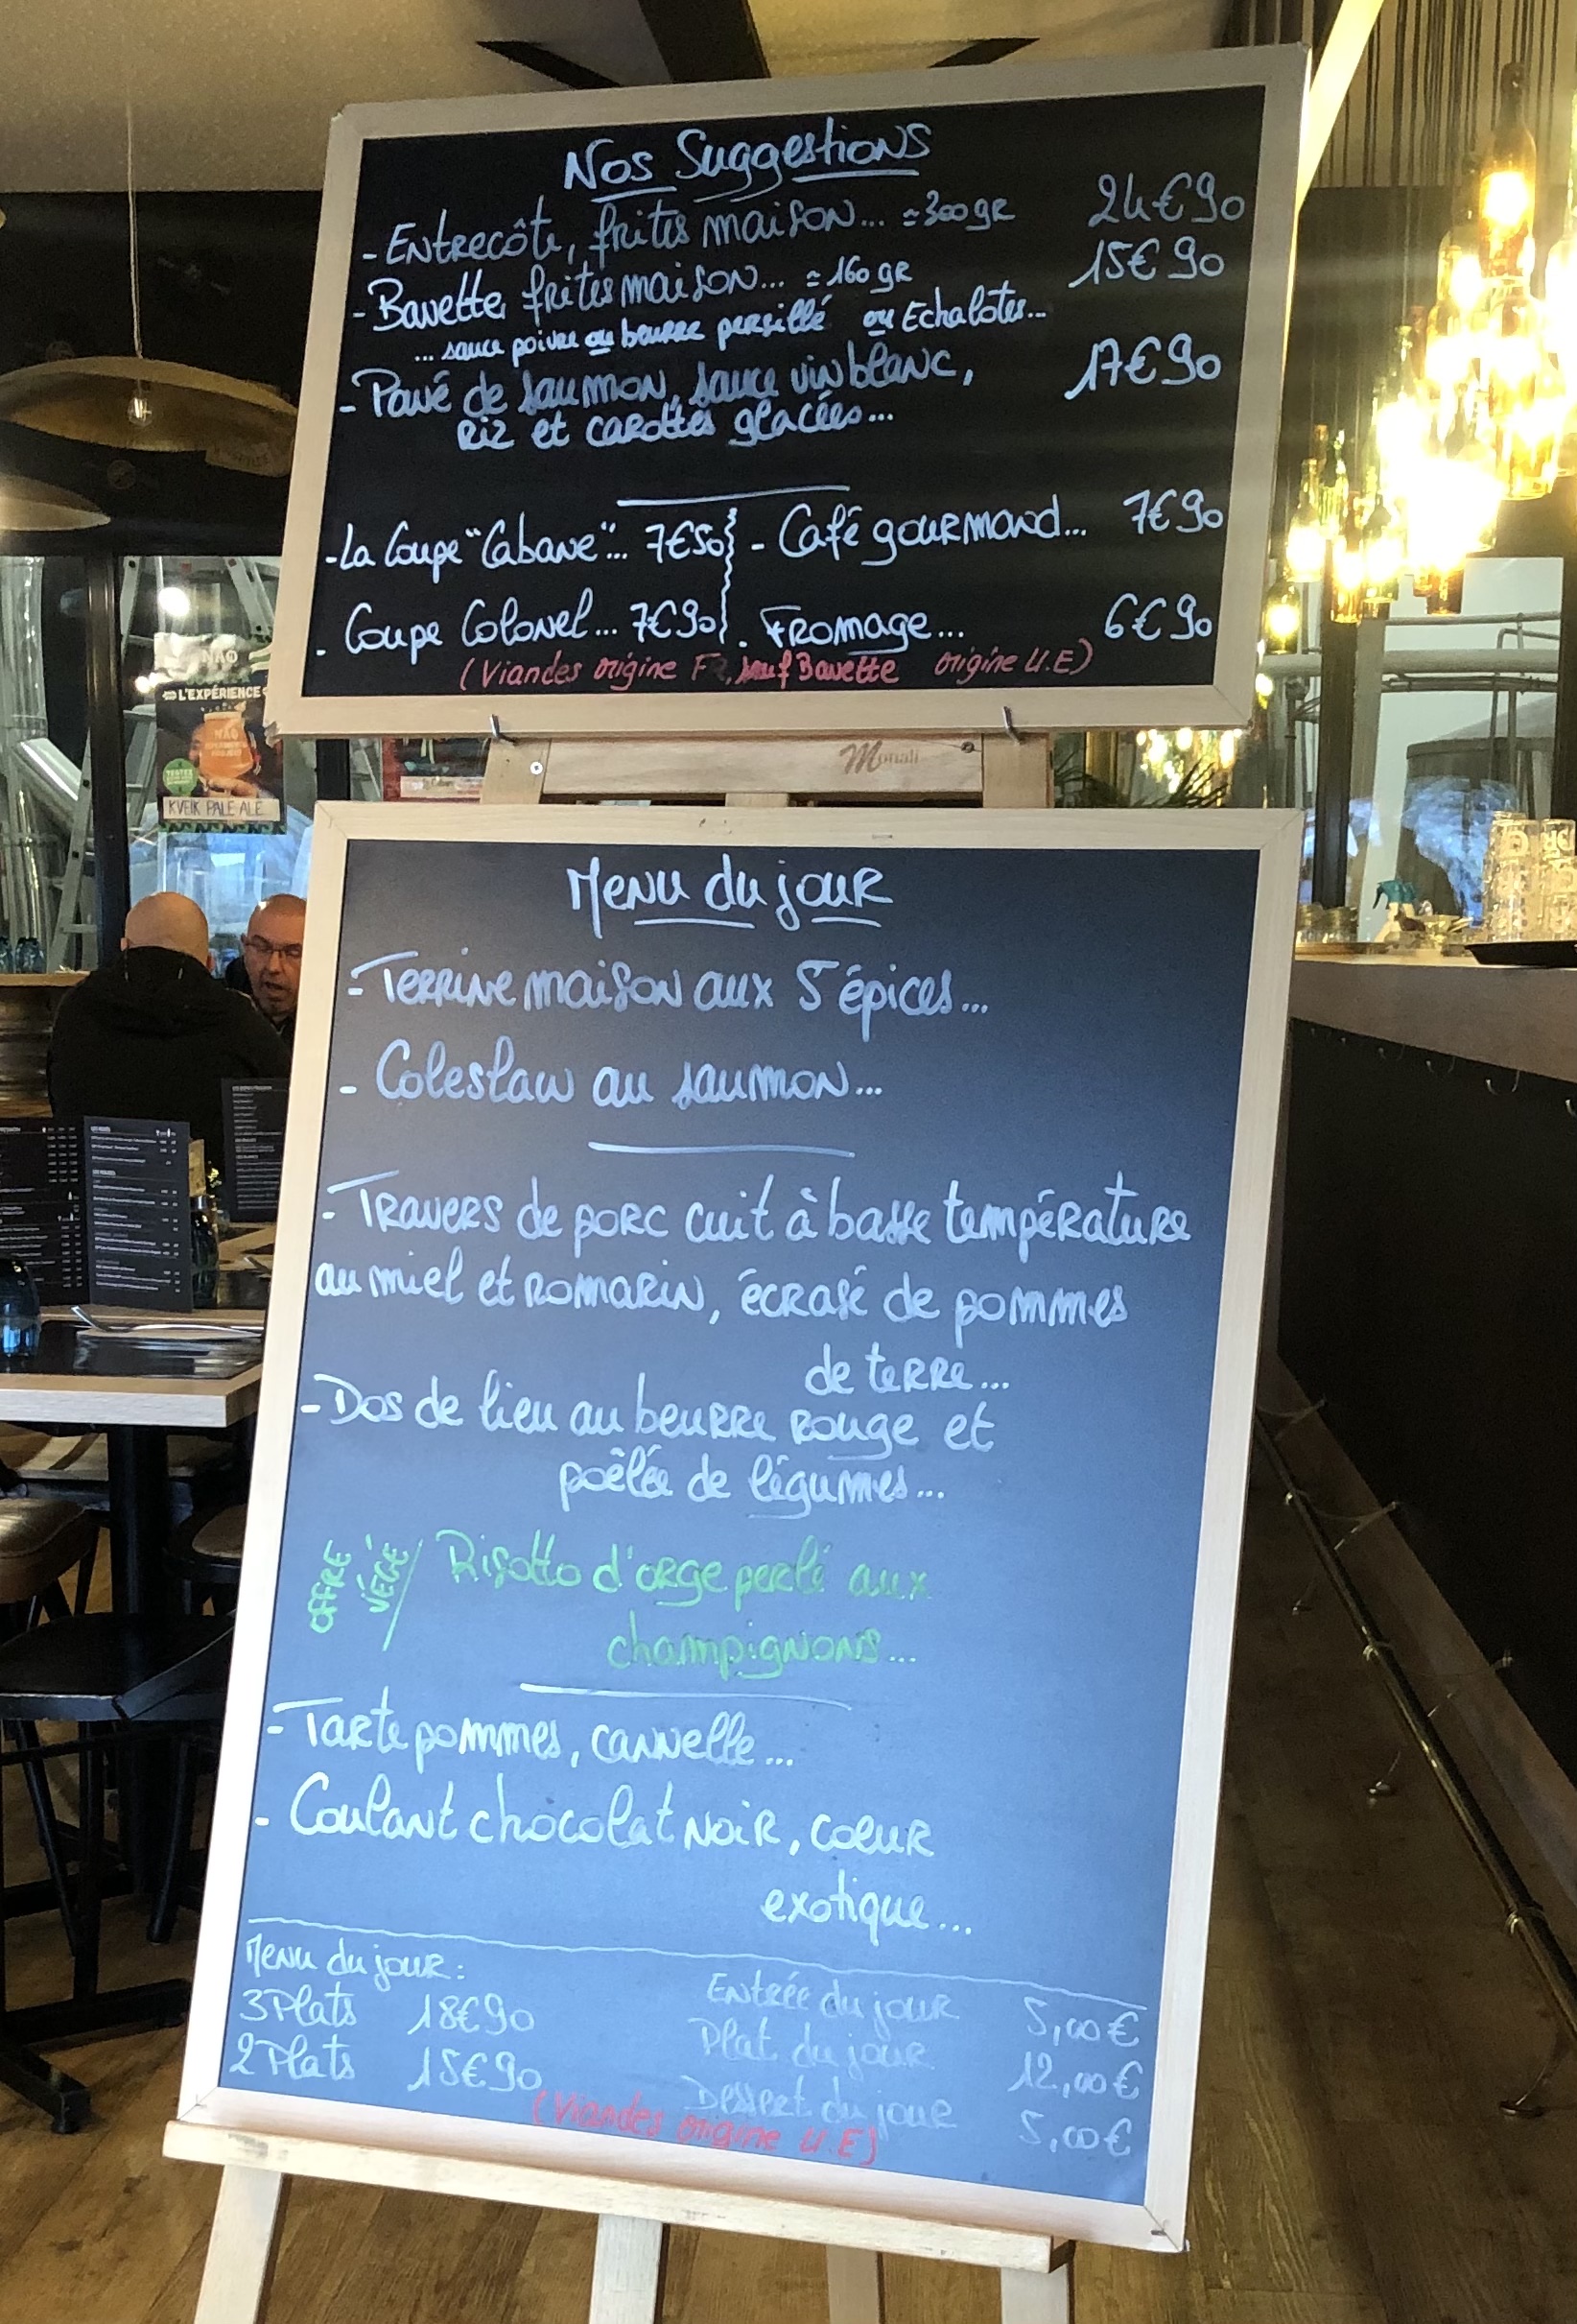 Nos Suggestions
- Entrecôte, frites maison... ≃ 300gr 24€90
- Bavette, frites maison... ≃ 160gr 15€90
... sauce poivre ou beurre persillé ou Echalotes...
- Pavé de saumon, sauce vin blanc, 17€90
Riz et carottes glacées...
- La Coupe "Cabane"... 7€50 - Café gourmand... 7€90
- Coupe Colonel... 7€90 . Fromage... 6€90
(Viandes origine FR, sauf Bavette origine U.E)
Monali
NAO
L'EXPÉRIENCE
NAO
KVEIK PALE ALE
Menu du jour
- Terrine maison aux 5 épices...
- Coleslaw au saumon...
- Travers de porc cuit à basse température
au miel et romarin, écrasé de pommes
de terre...
- Dos de lieu au beurre rouge et
poêlée de légumes...
OFFRE VÉGÉ / Risotto d'orge perlé aux
champignons...
- Tarte pommes, cannelle...
- Coulant chocolat noir, coeur
exotique...
Menu du jour:
3 Plats 18€90
2 Plats 15€90
Entrée du jour 5,00€
Plat du jour 12,00€
Dessert du jour 5,00€
(Viandes origine U.E)